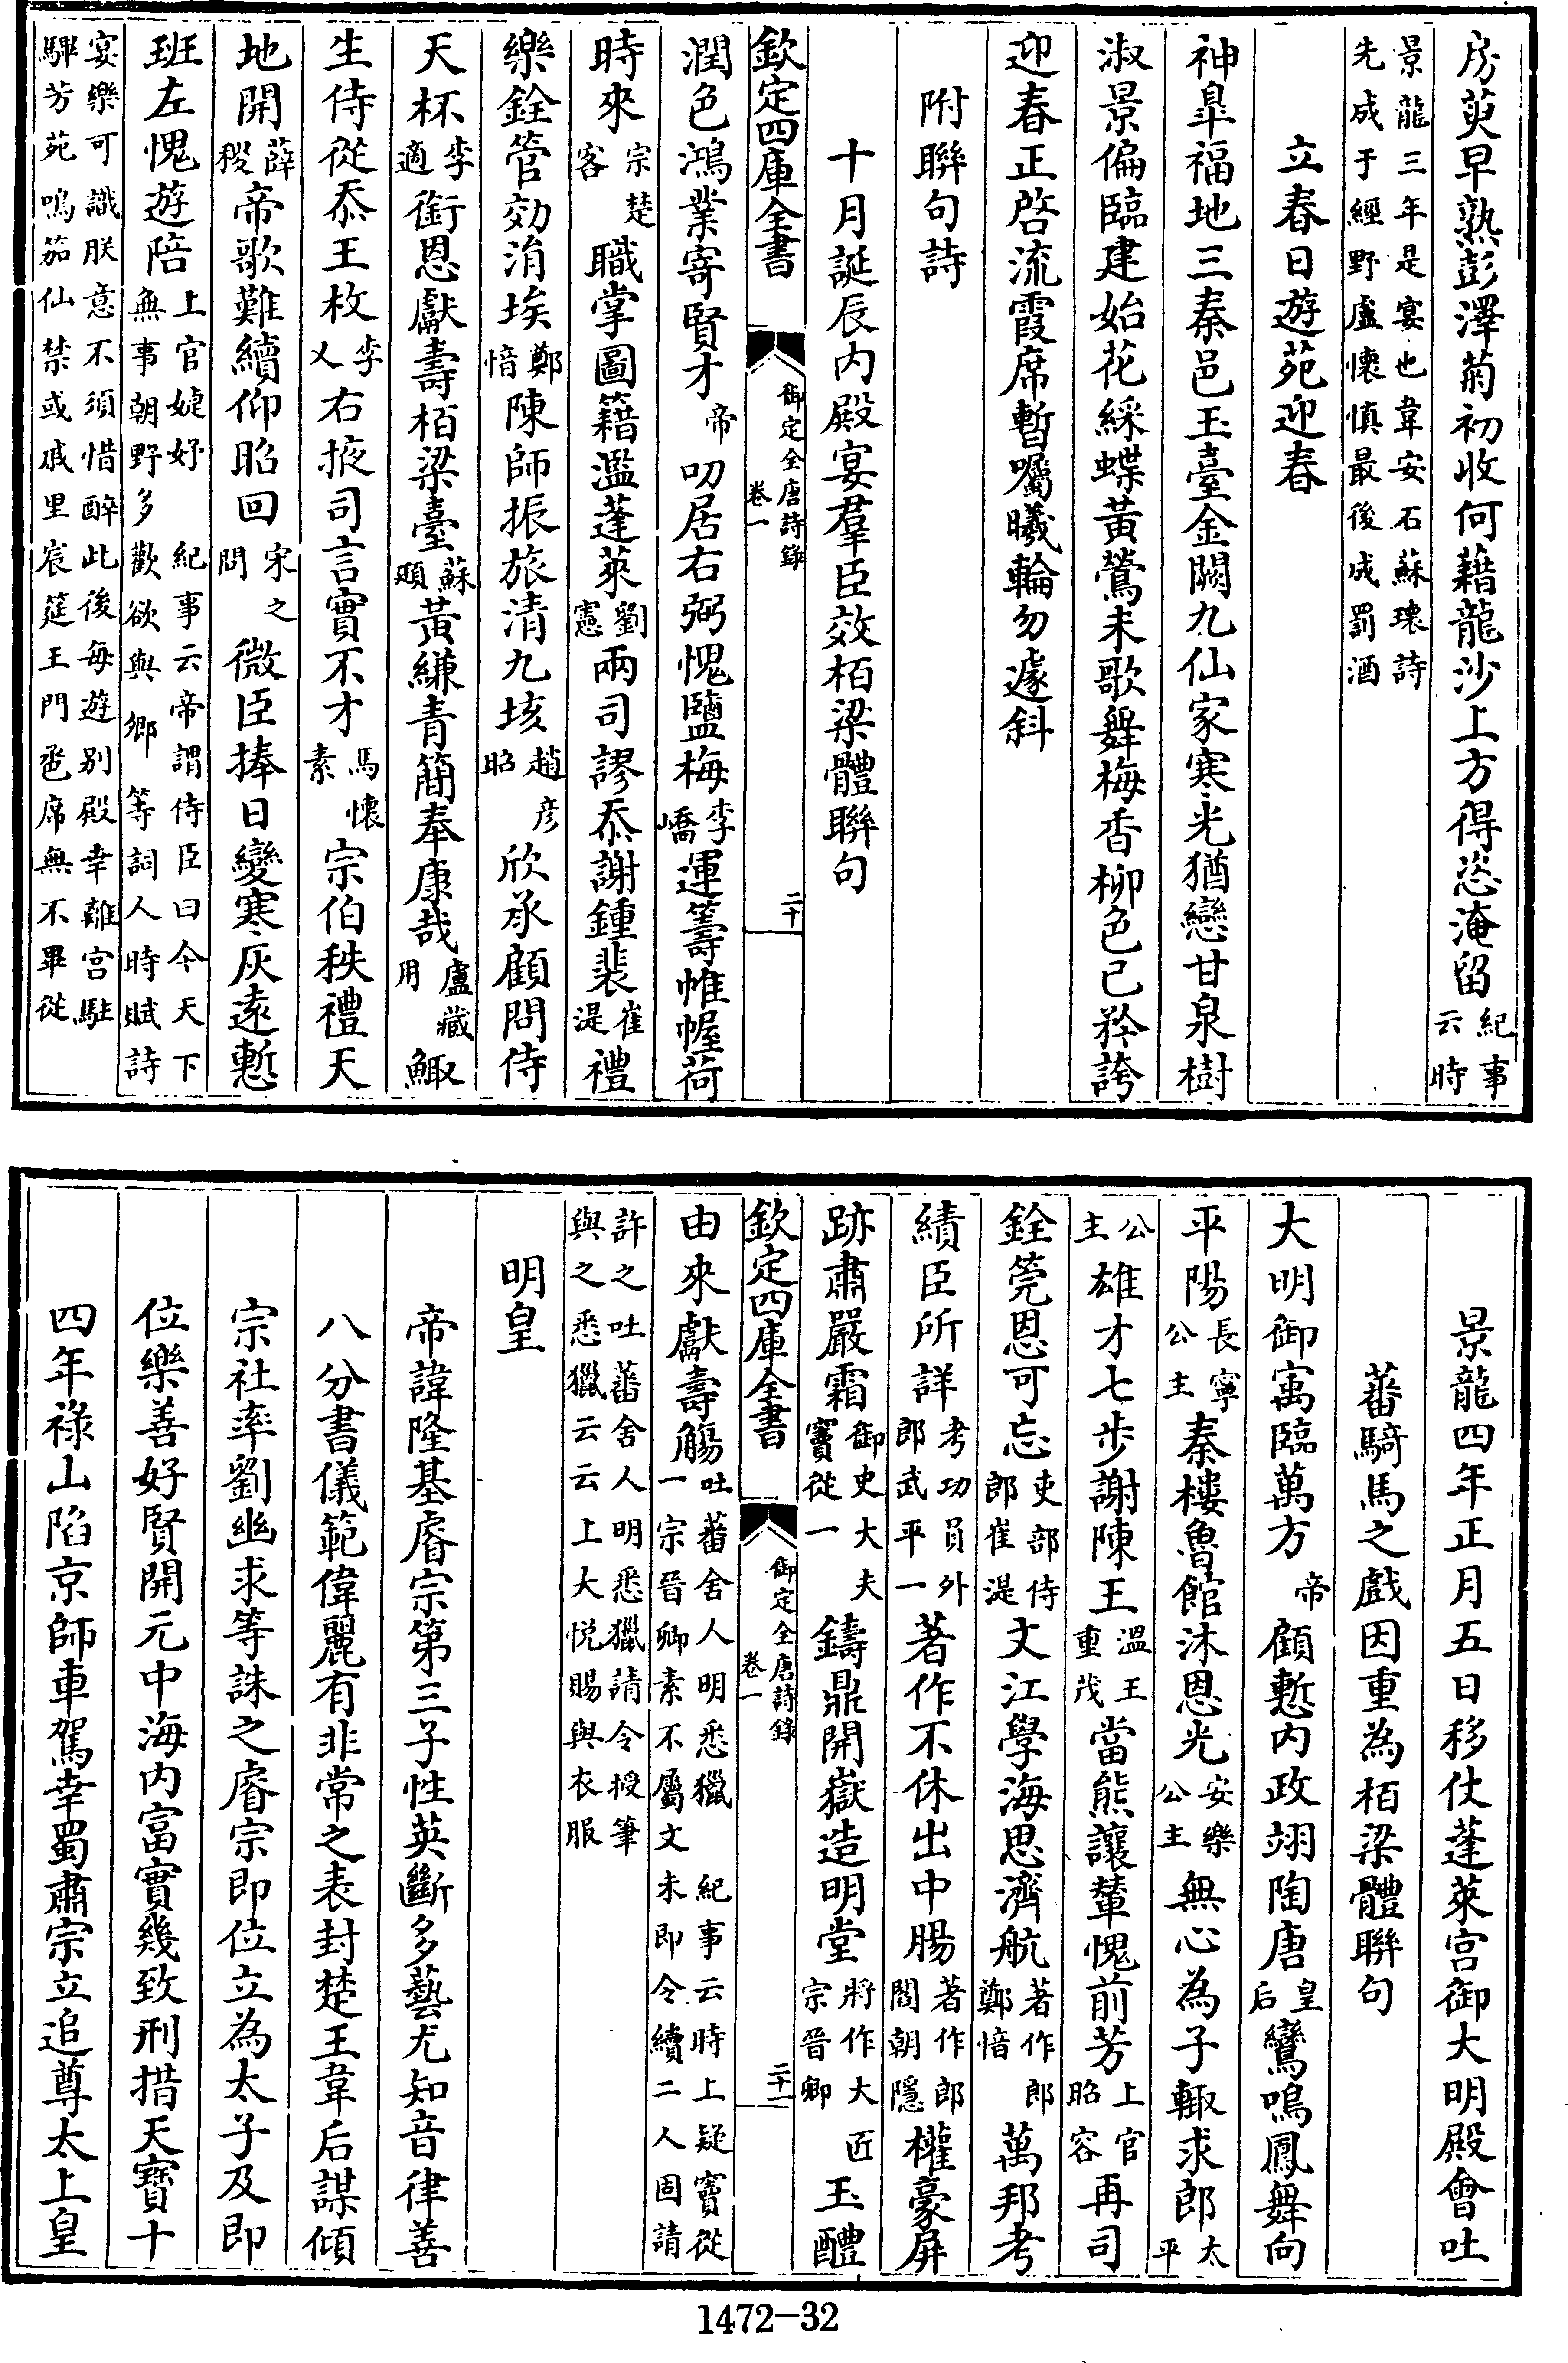 房萸早熟彭澤菊初收何藉龍沙上方得恣淹留紀事云時
景龍三年是宴也韋安石蘇瓌詩先成于經野盧懷慎最後成罰酒
立春日遊苑迎春
神臯福地三秦邑玉臺金闕九仙家寒光猶戀甘泉樹
淑景偏臨建始花綵蝶黃鶯未歌舞梅香柳色已矜誇
迎春正啓流霞席暫囑曦輪勿遽斜
附聯句詩
十月誕辰内殿宴羣臣效栢梁體聯句
欽定四庫全書 御定全唐詩錄 卷一 二十
潤色鴻業寄賢才帝叨居右弼愧鹽梅李嶠運籌帷幄荷
時來宗楚客職掌圖籍濫蓬萊劉憲兩司謬忝謝鍾裴崔湜禮
樂銓管効涓埃鄭愔陳師振旅清九垓趙彦昭欣承顧問侍
天杯李適銜恩獻壽栢梁臺蘇頲黃縑青簡奉康哉盧藏用鯫
生侍從忝王枚李乂右掖司言實不才馬懷素宗伯秩禮天
地開薛稷帝歌難續仰昭回宋之問微臣捧日變寒灰遠慙
班左愧遊陪上官婕妤紀事云帝謂侍臣曰今天下無事朝野多歡欲與卿等詞人時賦詩
宴樂可識朕意不須惜醉此後每遊别殿幸離宫駐驆芳苑鳴笳仙禁或戚里宸筵王門巹席無不畢從
景龍四年正月五日移仗蓬萊宫御大明殿會吐
蕃騎馬之戲因重為栢梁體聯句
大明御㝢臨萬方帝顧慙内政翊陶唐皇后鸞鳴鳳舞向
平陽長寧公主秦樓魯館沐恩光安樂公主無心為子輙求郎太平
公主雄才七步謝陳王溫王重茂當熊讓輦愧前芳上官昭容再司
銓筦恩可忘吏部侍郎崔湜文江學海思濟航著作郎鄭愔萬邦考
績臣所詳考功員外郎武平一著作不休出中腸著作郎閻朝隱權豪屏
跡肅嚴霜御史大夫竇從一鑄鼎開嶽造明堂將作大匠宗晉卿玉醴
欽定四庫全書 御定全唐詩錄 卷一 二十一
由來獻壽觴吐蕃舍人明悉獵紀事云時上疑竇從一宗晉卿素不屬文未即令續二人固請
許之吐蕃舍人明悉獵請令授筆與之悉獵云云上大悦賜與衣服
明皇
帝諱隆基睿宗第三子性英斷多藝尤知音律善
八分書儀範偉麗有非常之表封楚王韋后謀傾
宗社率劉幽求等誅之睿宗即位立為太子及即
位樂善好賢開元中海内富實幾致刑措天寶十
四年祿山陷京師車駕幸蜀肅宗立追尊太上皇
1472-32